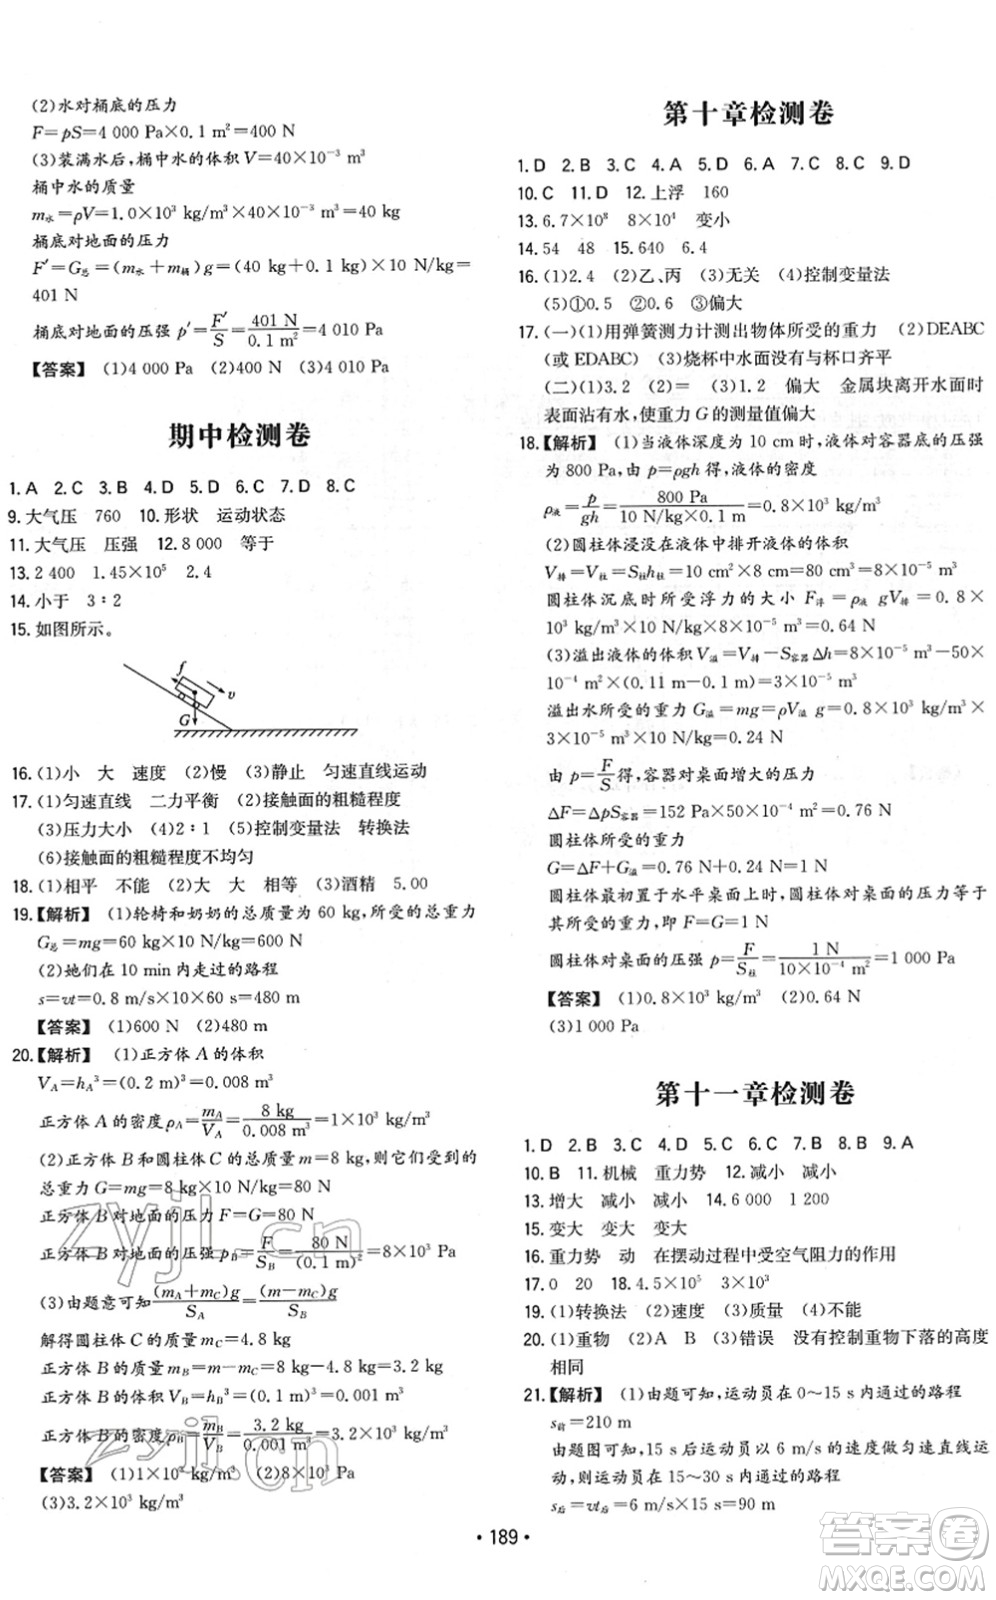 (2)水对桶底的压力
F=pS=4 000 Pa×0.1 m²=400 N
(3)装满水后,桶中水的体积 V=40×10⁻³ m³
桶中水的质量
m水=ρV=1.0×10³ kg/m³×40×10⁻³ m³=40 kg
桶底对地面的压力
F′=G总=(m水+m桶)g=(40 kg+0.1 kg)×10 N/kg=
401 N
桶底对地面的压强 p′=F′/S=401 N/0.1 m²=4 010 Pa
【答案】 (1)4 000 Pa (2)400 N (3)4 010 Pa
期中检测卷
1.A 2.C 3.B 4.D 5.D 6.C 7.D 8.C
9.大气压 760 10.形状 运动状态
11.大气压 压强 12.8 000 等于
13.2 400 1.45×10⁵ 2.4
14.小于 3∶2
15.如图所示。
f
v
G
16.(1)小 大 速度 (2)慢 (3)静止 匀速直线运动
17.(1)匀速直线 二力平衡 (2)接触面的粗糙程度
(3)压力大小 (4)2∶1 (5)控制变量法 转换法
(6)接触面的粗糙程度不均匀
18.(1)相平 不能 (2)大 大 相等 (3)酒精 5.00
19.【解析】 (1)轮椅和奶奶的总质量为 60 kg,所受的总重力
G总=mg=60 kg×10 N/kg=600 N
(2)她们在 10 min 内走过的路程
s=vt=0.8 m/s×10×60 s=480 m
【答案】 (1)600 N (2)480 m
20.【解析】 (1)正方体 A 的体积
V_A=h_A³=(0.2 m)³=0.008 m³
正方体 A 的密度ρ_A=m_A/V_A=8 kg/0.008 m³=1×10³ kg/m³
(2)正方体 B 和圆柱体 C 的总质量 m=8 kg,则它们受到的
总重力 G=mg=8 kg×10 N/kg=80 N
正方体 B 对地面的压力 F=G=80 N
正方体 B 对地面的压强 p_B=F/S_B=80 N/(0.1 m)²=8×10³ Pa
(3)由题意可知(m_A+m_C)g/S_A=(m-m_C)g/S_B
解得圆柱体 C 的质量 m_C=4.8 kg
正方体 B 的质量 m_B=m-m_C=8 kg-4.8 kg=3.2 kg
正方体 B 的体积 V_B=h_B³=(0.1 m)³=0.001 m³
正方体 B 的密度ρ_B=m_B/V_B=3.2 kg/0.001 m³=3.2×10³ kg/m³
【答案】 (1)1×10³ kg/m³ (2)8×10³ Pa
(3)3.2×10³ kg/m³
第十章检测卷
1.D 2.B 3.C 4.A 5.D 6.A 7.C 8.C 9.D
10.C 11.D 12.上浮 160
13.6.7×10⁸ 8×10⁴ 变小
14.54 48 15.640 6.4
16.(1)2.4 (2)乙、丙 (3)无关 (4)控制变量法
(5)①0.5 ②0.6 ③偏大
17.(一)(1)用弹簧测力计测出物体所受的重力 (2)DEABC
(或 EDABC) (3)烧杯中水面没有与杯口齐平
(二)(1)3.2 (2)= (3)1.2 偏大 金属块离开水面时
表面沾有水,使重力 G 的测量值偏大
18.【解析】 (1)当液体深度为 10 cm 时,液体对容器底的压强
为 800 Pa,由 p=ρgh 得,液体的密度
ρ液=p/gh=800 Pa/10 N/kg×0.1 m=0.8×10³ kg/m³
(2)圆柱体浸没在液体中排开液体的体积
V排=V柱=S柱h柱=10 cm²×8 cm=80 cm³=8×10⁻⁵ m³
圆柱体沉底时所受浮力的大小 F浮=ρ液 gV排=0.8×
10³ kg/m³×10 N/kg×8×10⁻⁵ m³=0.64 N
(3)溢出液体的体积 V溢=V排-S容器Δh=8×10⁻⁵ m³-50×
10⁻⁴ m²×(0.11 m-0.1 m)=3×10⁻⁵ m³
溢出水所受的重力 G溢=mg=ρV溢 g=0.8×10³ kg/m³×
3×10⁻⁵ m³×10 N/kg=0.24 N
由 p=F/S得,容器对桌面增大的压力
ΔF=ΔpS容器=152 Pa×50×10⁻⁴ m²=0.76 N
圆柱体所受的重力
G=ΔF+G溢=0.76 N+0.24 N=1 N
圆柱体最初置于水平桌面上时,圆柱体对桌面的压力等于
其所受的重力,即 F=G=1 N
圆柱体对桌面的压强 p=F/S柱=1 N/10×10⁻⁴ m²=1 000 Pa
【答案】 (1)0.8×10³ kg/m³ (2)0.64 N
(3)1 000 Pa
第十一章检测卷
1.D 2.B 3.C 4.D 5.C 6.C 7.B 8.B 9.A
10.B 11.机械 重力势 12.减小 减小
13.增大 减小 减小 14.6 000 1 200
15.变大 变大 变大
16.重力势 动 在摆动过程中受空气阻力的作用
17.0 20 18.4.5×10⁵ 3×10³
19.(1)转换法 (2)速度 (3)质量 (4)不能
20.(1)重物 (2)A B (3)错误 没有控制重物下落的高度
相同
21.【解析】 (1)由题可知,运动员在 0～15 s 内通过的路程
s前=210 m
由题图可知,15 s 后运动员以 6 m/s 的速度做匀速直线运
动,则运动员在 15～30 s 内通过的路程
s后=vt后=6 m/s×15 s=90 m
· 189 ·
zyjl.cn
zyjl.cn
答案圈
MXQE.COM